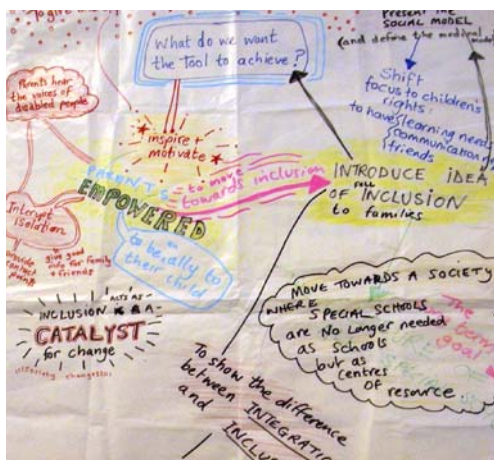 together
What do we want
the Tool to achieve?
PRESENT THE
SOCIAL MODEL
(and define the medical model
Shift
focus to children's
rights:
to have learning needs
communication
friends
Parents hear
the voices of
disabled people
inspire +
motivate
PARENTS
EMPOWERED
to move
towards inclusion
INTRODUCE IDEA
OF FULL INCLUSION
to families
Interupt
isolation
provide
contact
give good
info for family
+ friends
to be an ally to
their child
INCLUSION ACTS AS A
CATALYST
for change
MOVE TOWARDS A SOCIETY
WHERE SPECIAL SCHOOLS
are No longer needed
as schools
but as
centres
OF resource.
The
term
goal
To show the difference
between INTEGRATION
and INCLUS